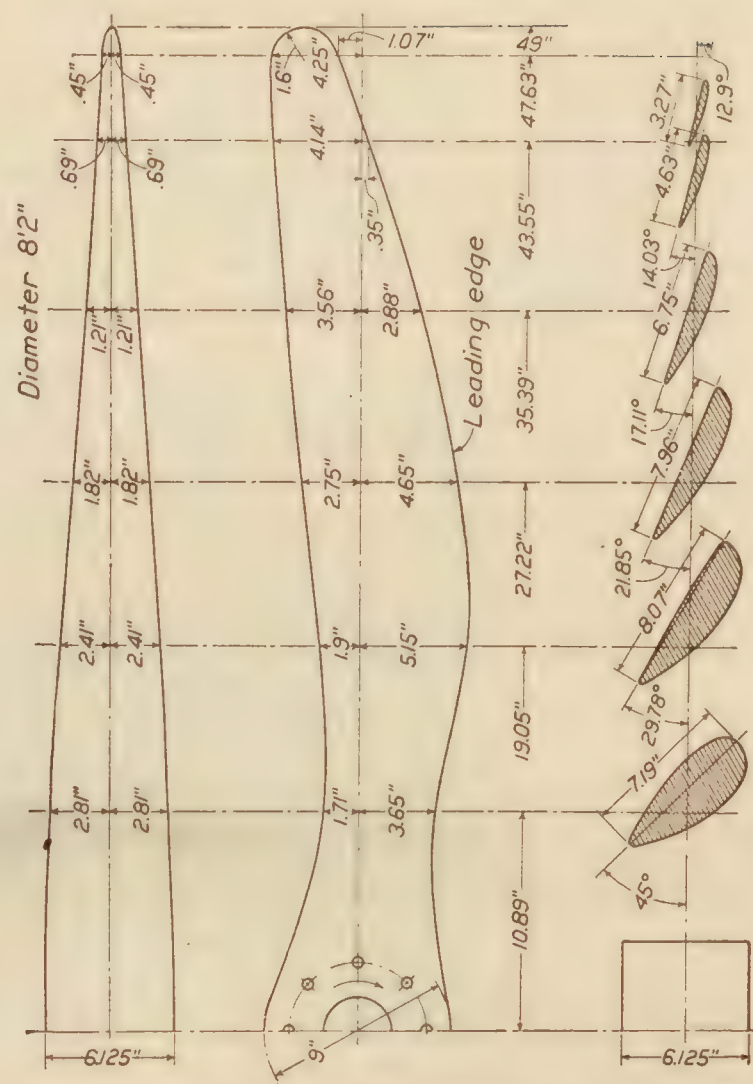 Diameter 8'2"
.45"
.45"
.69"
.69"
1.21"
1.21"
1.82"
1.82"
2.41"
2.41"
2.81"
2.81"
6.125"
1.07"
1.6"
4.25"
4.14"
.35"
3.56"
2.88"
Leading edge
2.75"
4.65"
1.9"
5.15"
1.71"
3.65"
9"
49"
47.63"
43.55"
35.39"
27.22"
19.05"
10.89"
12.9°
3.27"
4.63"
14.03°
6.75"
17.11°
7.96"
21.85°
8.07"
29.78°
7.19"
45°
6.125"